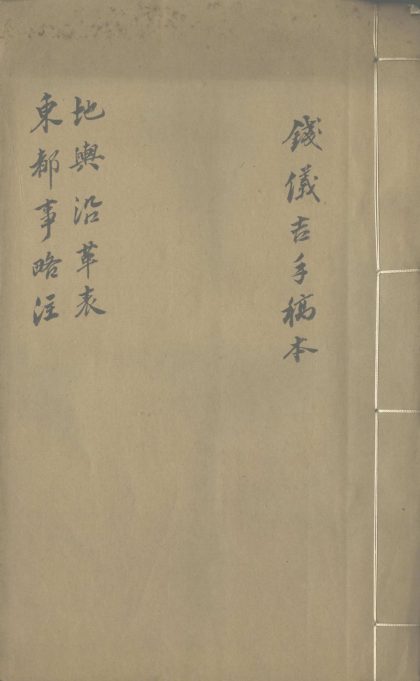 錢儀吉手稿本
地輿沿革表
東都事略注